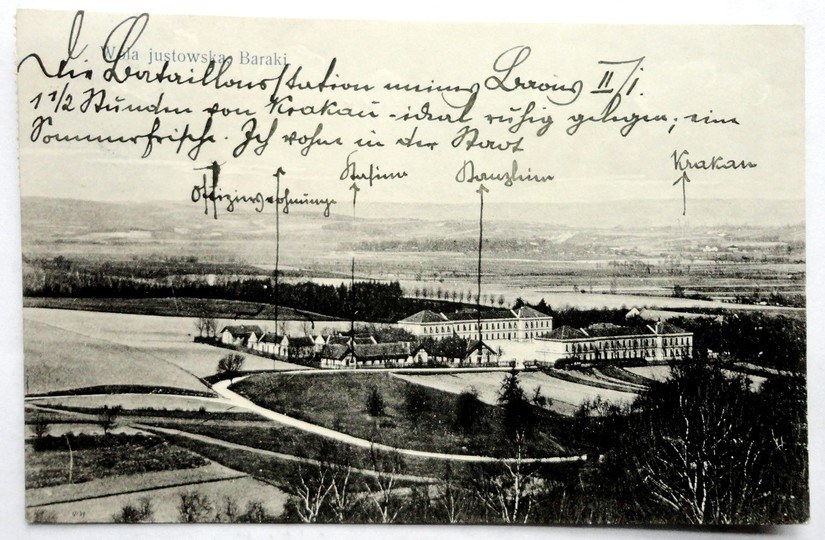 Wola justowska, Baraki
Die Bataillonsstation meines Baons II/1.
1 1/2 Stunden von Krakau - ideal ruhig gelegen, eine
Sommerfrische. Ich wohne in der Stadt
Krakau
Offizierswohnunge